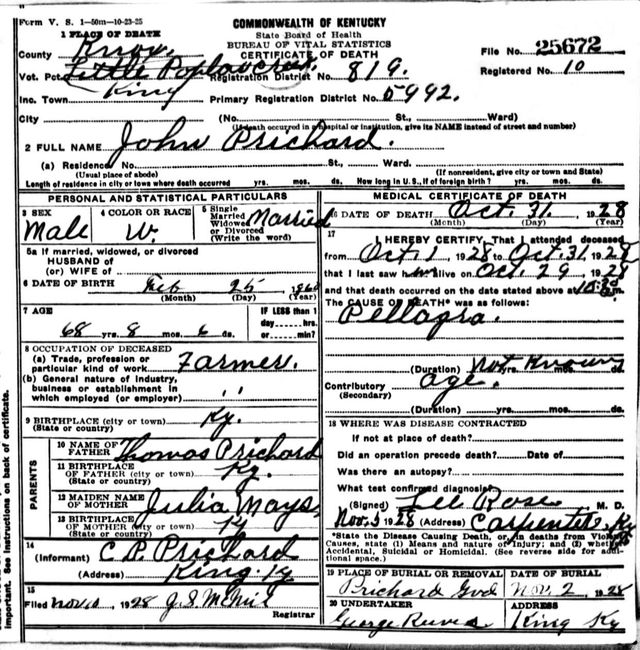 Form V. S. 1—50m—10-23-25
COMMONWEALTH OF KENTUCKY
State Board of Health
BUREAU OF VITAL STATISTICS
CERTIFICATE OF DEATH
1 PLACE OF DEATH
County Knox
File No. 25672
Vot. Pct. Little Poplar Registration District No. 819.
Registered No. 10
King
Inc. Town Primary Registration District No. 5992.
City (No. St., Ward)
(If death occurred in a hospital or institution, give its NAME instead of street and number)
2 FULL NAME John Prichard.
(a) Residence. No. St., Ward.
(Usual place of abode) (If nonresident, give city or town and State)
Length of residence in city or town where death occurred yrs. mos. ds. How long in U. S., if of foreign birth? yrs. mos. ds.
PERSONAL AND STATISTICAL PARTICULARS
3 SEX Male
4 COLOR OR RACE W.
5 Single
Married
Widowed
or Divorced
(Write the word) Married
5a If married, widowed, or divorced
HUSBAND of
(or) WIFE of
6 DATE OF BIRTH Feb 25 1860
(Month) (Day) (Year)
7 AGE
68 yrs. 8 mos. 6 ds.
IF LESS than 1
day hrs.
or min?
8 OCCUPATION OF DECEASED
(a) Trade, profession or
particular kind of work Farmer.
(b) General nature of industry,
business or establishment in
which employed (or employer) ' '
9 BIRTHPLACE (city or town) Ky.
(State or country)
PARENTS
10 NAME OF
FATHER Thomas Prichard
11 BIRTHPLACE
OF FATHER (city or town) Ky.
(State or country)
12 MAIDEN NAME
OF MOTHER Julia Mays
13 BIRTHPLACE
OF MOTHER (city or town) Ky
(State or country)
14
(Informant) C. P. Prichard
(Address) King Ky
15
Filed Nov 10, 1928 J. S. McNeil
Registrar
MEDICAL CERTIFICATE OF DEATH
16 DATE OF DEATH Oct. 31, 1928
(Month) (Day) (Year)
17
I HEREBY CERTIFY, That I attended deceased
from Oct 1, 1928 to Oct. 31, 1928
that I last saw him alive on Oct. 29, 1928
and that death occurred on the date stated above at m.
The CAUSE OF DEATH* was as follows:
Pellagra.
(Duration) Not Known yrs. mos. ds.
Contributory Age.
(Secondary)
(Duration) yrs. mos. ds.
18 WHERE WAS DISEASE CONTRACTED
If not at place of death?
Did an operation precede death? Date of
Was there an autopsy?
What test confirmed diagnosis?
(Signed) Lee Rose M. D.
Nov. 5 1928 (Address) Carpenter, Ky
*State the Disease Causing Death, or, in deaths from Violent
Causes, state (1) Means and nature of Injury; and (2) whether
Accidental, Suicidal or Homicidal. (See reverse side for addi-
tional space.)
19 PLACE OF BURIAL OR REMOVAL
Prichard Gvd
DATE OF BURIAL
Nov. 2, 1928
20 UNDERTAKER
George Reeves
ADDRESS
King Ky
important. See instructions on back of certificate.